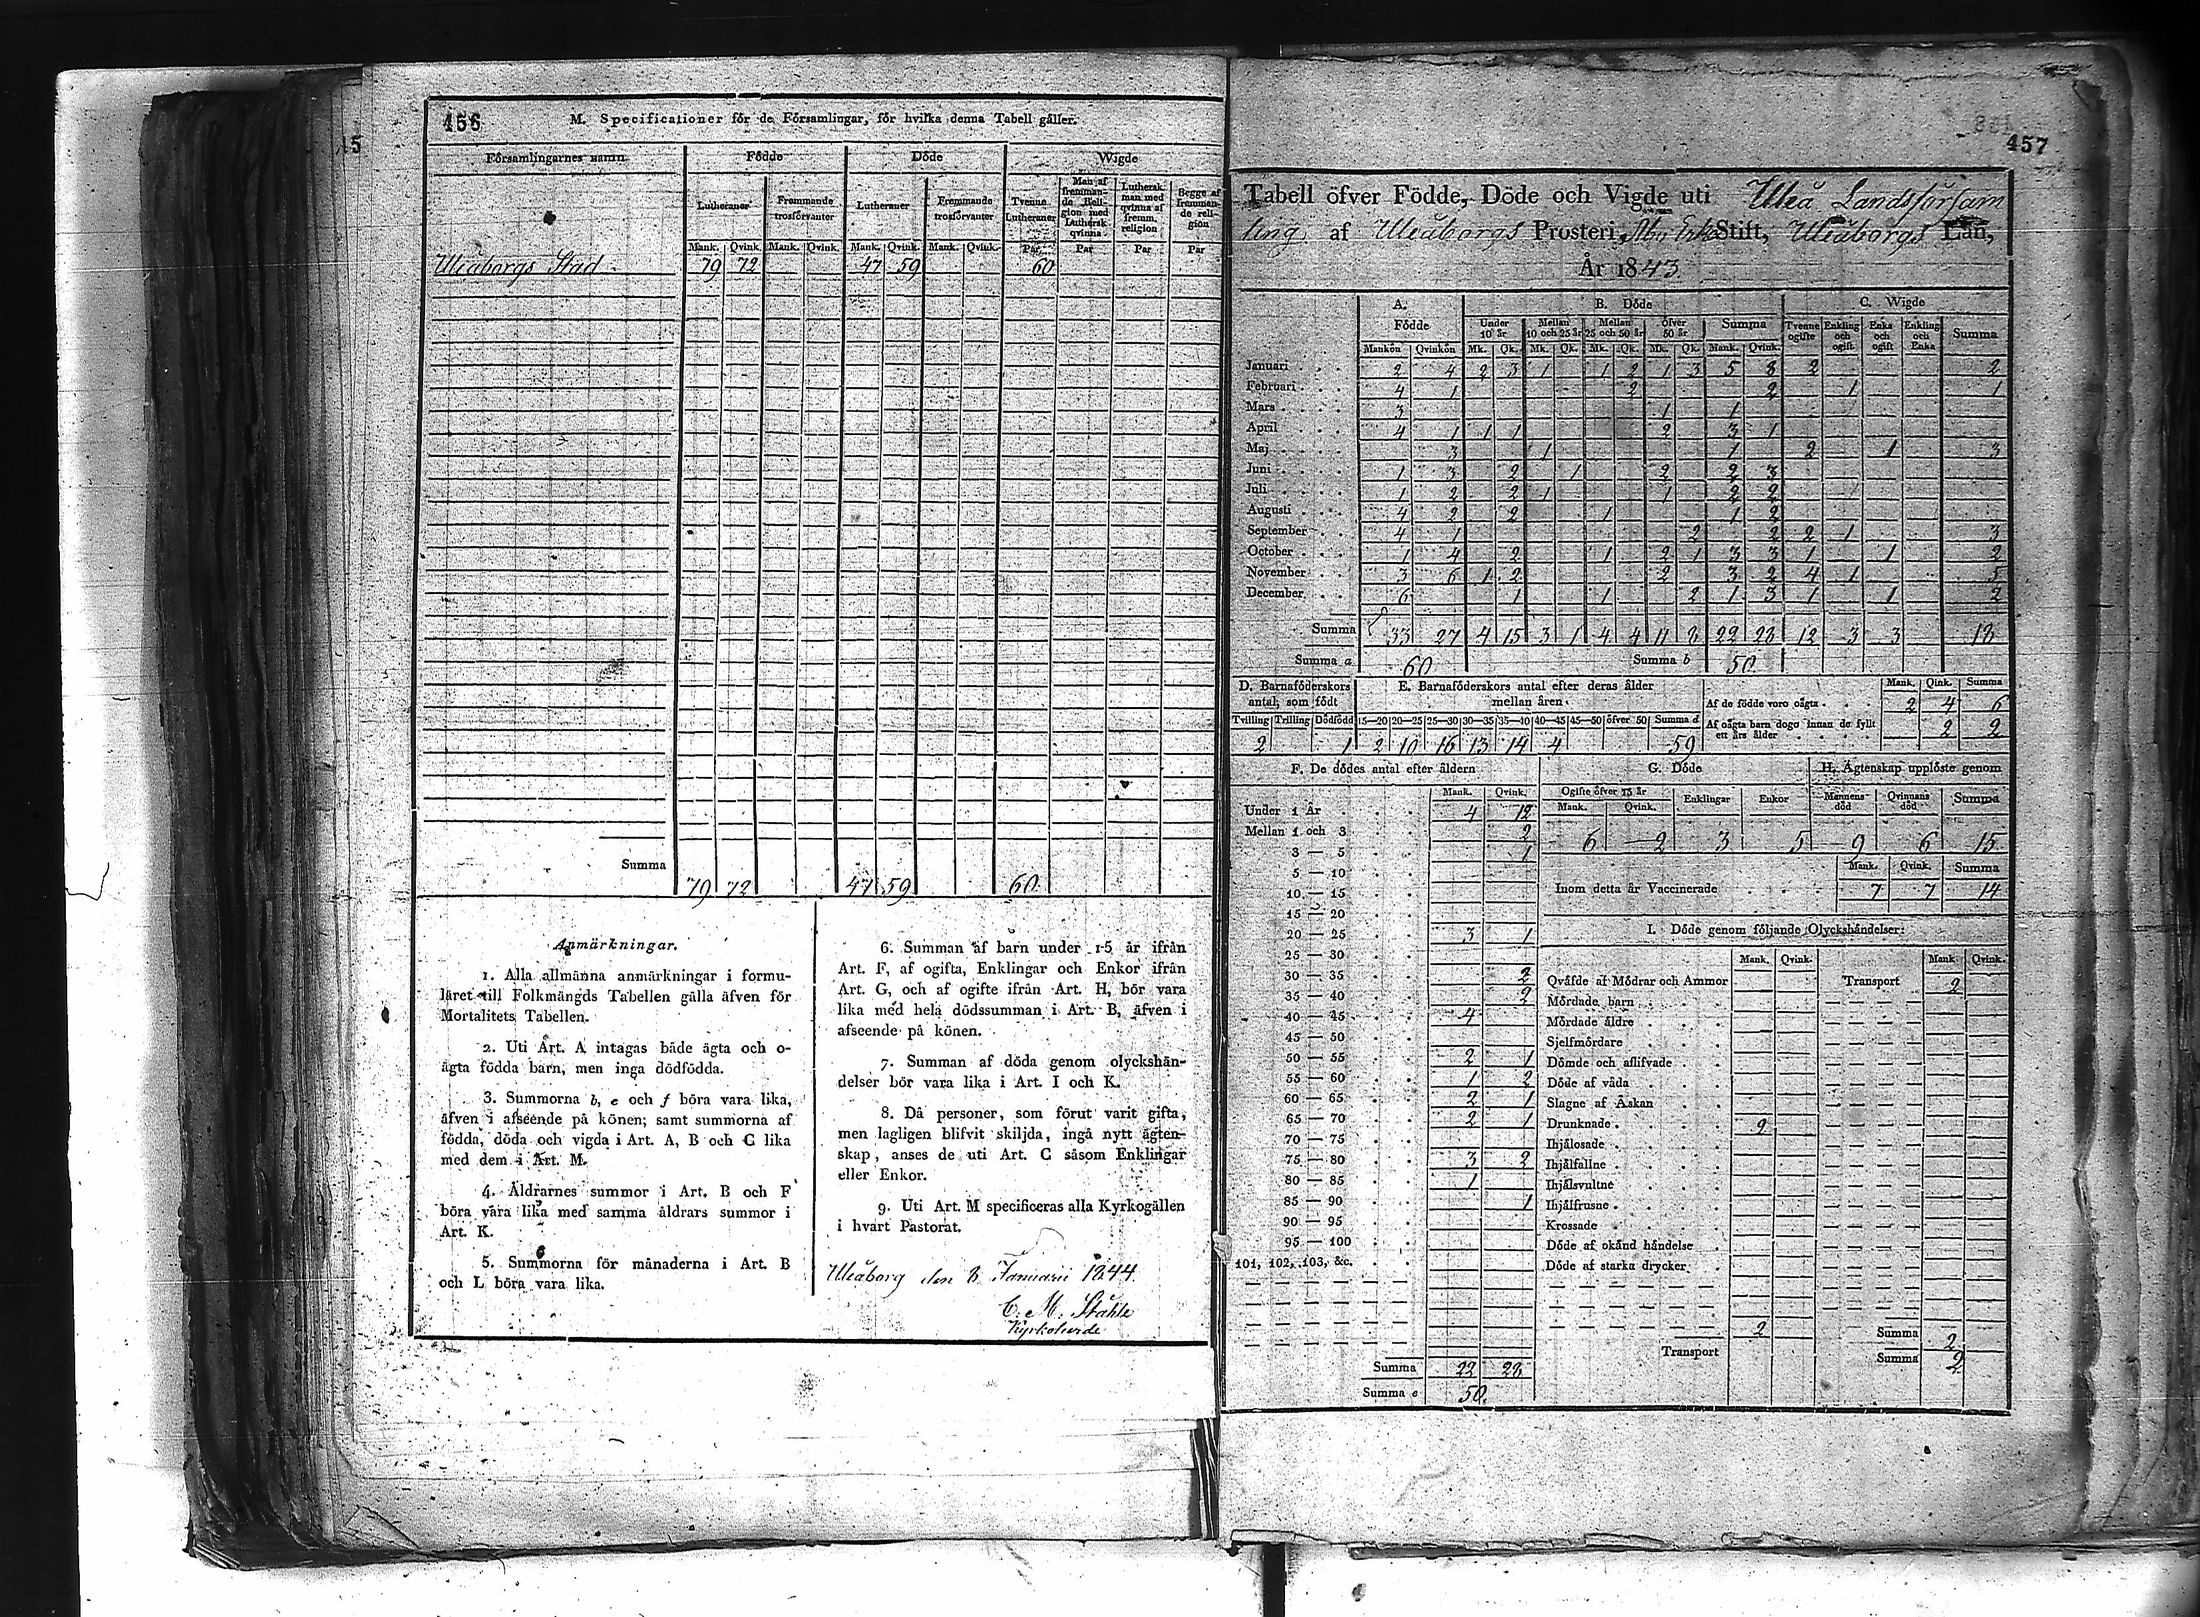 456
M. Specificationer för de Församlingar, för hvilka denna Tabell gäller.
Församlingarnes namn Födde Döde Wigde
Lutheraner Fremmande trosförvanter Lutheraner Fremmande trosförvanter Tvenne Lutheraner Man af fremmande Religion med Luthersk qvinna Luthersk man med qvinna af fremm. religion Begge af fremmande religion
Mank. Qvink. Mank. Qvink. Mank. Qvink. Mank. Qvink. Par Par Par Par
Uleåborgs Stad 79 72 47 59 60
Summa 79 72 47 59 60
Anmärkningar.
1. Alla allmänna anmärkningar i formu-
läret till Folkmängds Tabellen gälla äfven för
Mortalitets Tabellen.
2. Uti Art. A intagas både ägta och o-
ägta födda barn, men inga dödfödda.
3. Summorna b, e och f böra vara lika,
äfven i afseende på könen; samt summorna af
födda, döda och vigda i Art. A, B och C lika
med dem i Art. M.
4. Åldrarnes summor i Art. B och F
böra vara lika med samma åldrars summor i
Art. K.
5. Summorna för månaderna i Art. B
och L böra vara lika.
6. Summan af barn under 15 år ifrån
Art. F, af ogifta, Enklingar och Enkor ifrån
Art. G, och af ogifte ifrån Art. H, bör vara
lika med hela dödssumman i Art. B, äfven i
afseende på könen.
7. Summan af döda genom olyckshän-
delser bör vara lika i Art. I och K.
8. Då personer, som förut varit gifta,
men lagligen blifvit skiljda, ingå nytt ägten-
skap, anses de uti Art. C såsom Enklingar
eller Enkor.
9. Uti Art. M specificeras alla Kyrkogällen
i hvart Pastorat.
Uleåborg den 8 Januarii 1844.
C. M. Ståhle
Kyrkoherde
457
Tabell öfver Födde, Döde och Vigde uti Uleå Landsförsam
ling af Uleåborgs Prosteri, Åbo Stift, Uleåborgs Län,
År 1843
A. B. Döde C. Wigde
Födde Under 10 år Mellan 10 och 25 år Mellan 25 och 50 år Öfver 50 år Summa Tvenne ogifte Enkling och ogift Enka och ogift Enkling och Enka Summa
Mankön Qvinkön Mk. Qk. Mk. Qk. Mk. Qk. Mk. Qk. Mank. Qvink.
Januari 2 4 2 3 1 1 2 1 3 5 8 2 2
Februari 4 1 2 2 1 1
Mars 3 1 1
April 4 1 1 1 2 3 1
Maj 3 1 1 2 1 3
Juni 1 3 2 1 2 2 3
Juli 1 2 2 1 1 2 2
Augusti 4 2 2 1 1 2
September 4 1 2 2 2 1 3
October 1 4 2 1 2 1 3 3 1 1 2
November 3 6 1 2 2 3 2 4 1 5
December 6 1 1 2 1 3 1 1 2
Summa 33 27 4 15 3 1 4 4 11 8 22 28 12 3 3 18
Summa a 60 Summa b 50
D. Barnaföderskors antal, som födt
Tvilling Trilling Dödfödd
2 1
E. Barnaföderskors antal efter deras ålder mellan åren
15—20 20—25 25—30 30—35 35—40 40—45 45—50 öfver 50 Summa d
2 10 16 13 14 4 59
Mank. Qink. Summa
Af de födde voro oägta 2 4 6
Af oägta barn dogo innan de fyllt ett års ålder 2 2
F. De dödes antal efter åldern
Mank. Qvink.
Under 1 År 4 12
Mellan 1 och 3 2
3 — 5 1
5 — 10
10 — 15
15 — 20
20 — 25 3 1
25 — 30
30 — 35 2
35 — 40 2
40 — 45 4
45 — 50
50 — 55 2 1
55 — 60 1 2
60 — 65 2 1
65 — 70 2 1
70 — 75
75 — 80 3 2
80 — 85 1
85 — 90 1
90 — 95
95 — 100
101, 102, 103, &c.
Summa 22 28
Summa e 50.
G. Döde
Ogifte öfver 15 år Enklingar Enkor
Mank. Qvink.
6 2 3 5
H. Ägtenskap upplöste genom
Mannens död Qvinnans död Summa
9 6 15
Mank. Qvink. Summa
Inom detta år Vaccinerade 7 7 14
I. Döde genom följande Olyckshändelser:
Mank. Qvink. Mank. Qvink.
Qväfde af Mödrar och Ammor Transport 2
Mördade barn
Mördade äldre
Sjelfmördare
Dömde och aflifvade
Döde af våda
Slagne af Åskan
Drunknade 2
Ihjälosade
Ihjälfallne
Ihjälsvultne
Ihjälfrusne
Krossade
Döde af okänd händelse
Döde af starka drycker
Transport 2
Summa 2
Summa 2